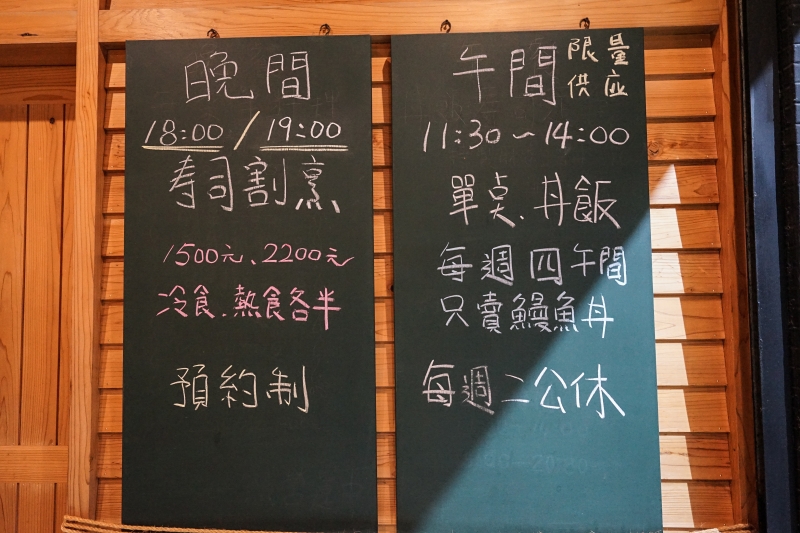 晚間
18:00 / 19:00
寿司割烹
1500元、2200元
冷食、熱食各半
預約制
午間
限量
供應
11:30 ~ 14:00
單桌、丼飯
每週四午間
只賣鰻魚丼
每週二公休